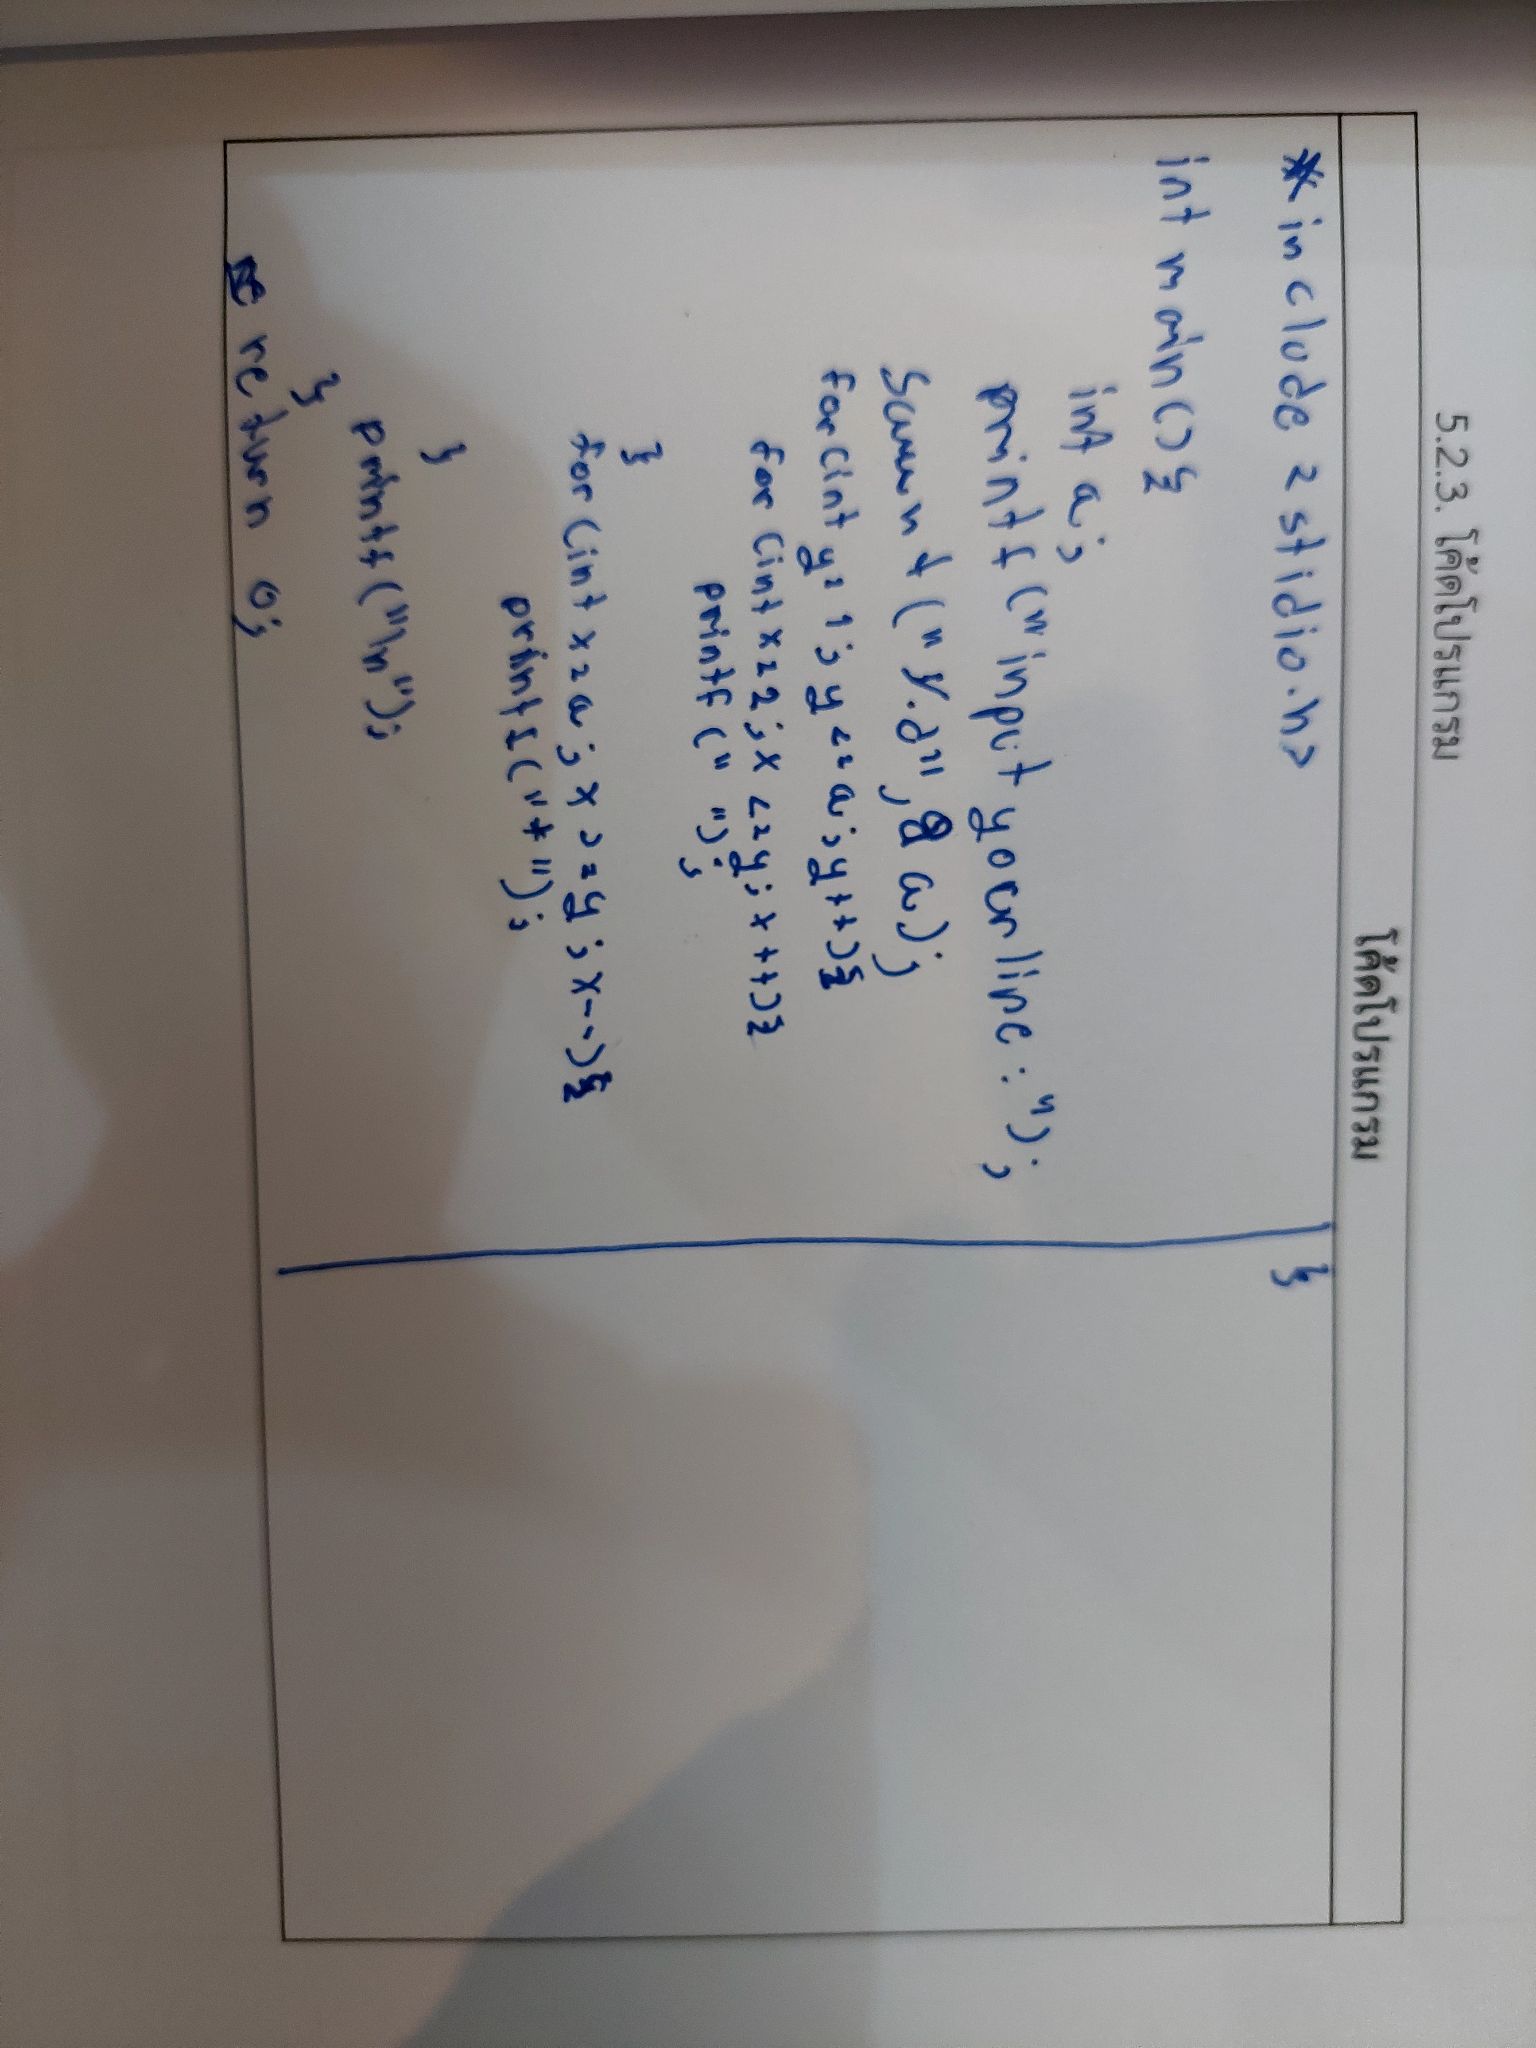 5.2.3. โค้ดโปรแกรม
โค้ดโปรแกรม
#include <stidio.h>
int main(){
int a;
printf("input your line : ");
scanf("%d",&a);
for(int y=1;y<=a;y++){
for(int x=2;x<=y;x++){
printf(" ");
}
for(int x=a;x>=y;x--){
printf("*");
}
printf("\n");
}
return 0;
}